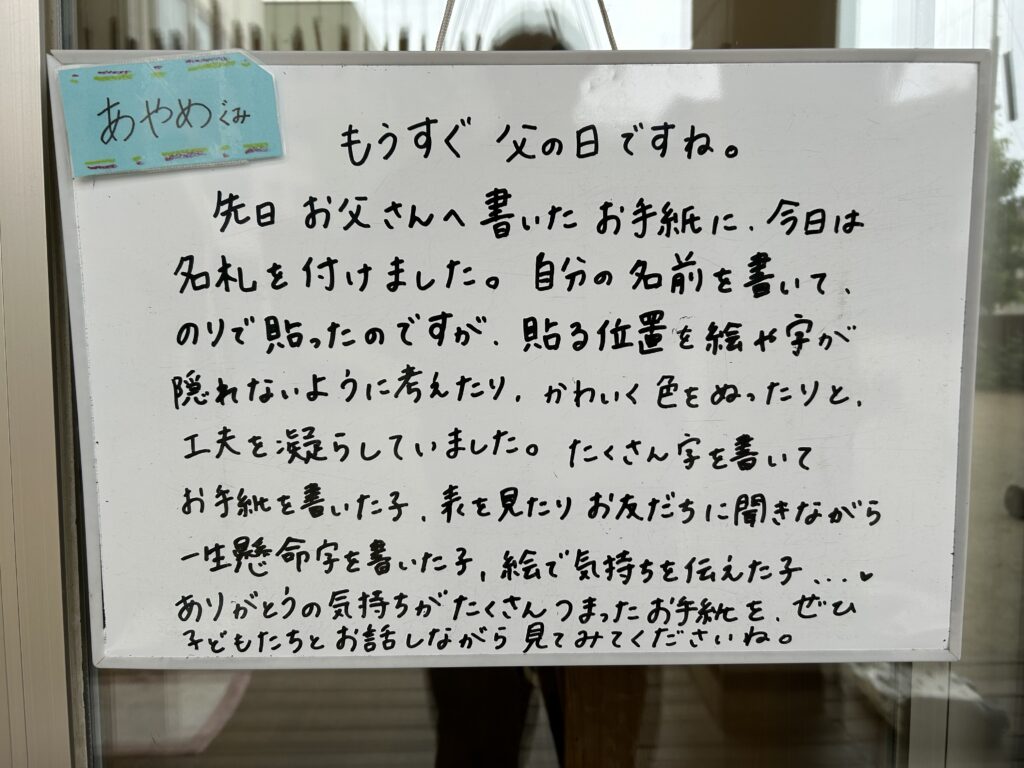 あやめぐみ
もうすぐ 父の日ですね。
先日 お父さんへ 書いた お手紙に、今日は
名札を付けました。自分の名前を書いて、
のりで貼ったのですが、貼る位置を絵や字が
隠れないように考えたり、かわいく色をぬったりと、
工夫を凝らしていました。たくさん字を書いて
お手紙を書いた子、表を見たりお友だちに聞きながら
一生懸命字を書いた子、絵で気持ちを伝えた子...♥
ありがとうの気持ちがたくさんつまったお手紙を、ぜひ
子どもたちとお話しながら見てみてくださいね。